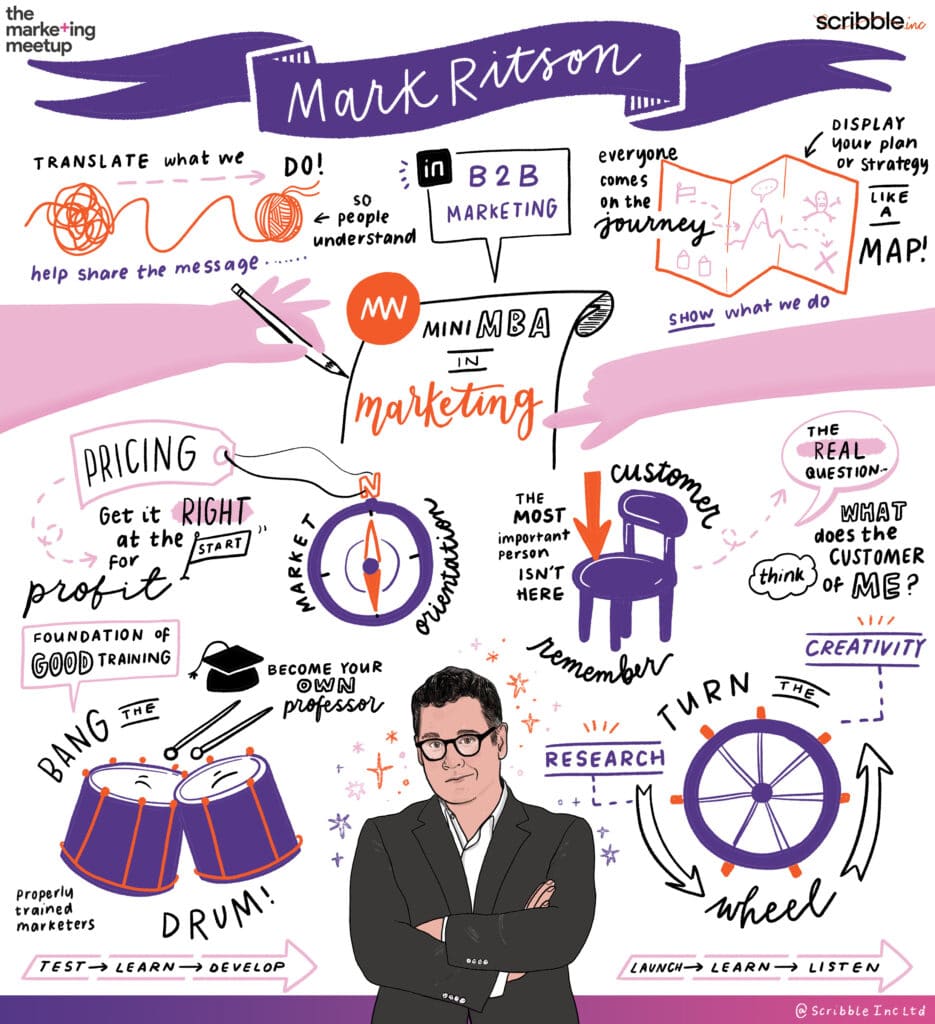 the
marketing
meetup
scribble.inc
Mark Ritson
TRANSLATE what we DO!
so
people
understand
help share the message.......
in
B2B
MARKETING
everyone
comes
on the
journey
DISPLAY
your plan
or strategy
LIKE
A
MAP!
SHOW what we do
MW
MINI MBA
IN
marketing
PRICING
Get it RIGHT
at the START
FOR
profit
N
MARKET
orientation
THE
MOST
important
person
ISN'T
HERE
customer
remember
THE
REAL
QUESTION...
WHAT
does the
CUSTOMER
think OF ME?
FOUNDATION of
GOOD TRAINING
BECOME YOUR
OWN
professor
BANG THE
DRUM!
properly
trained
marketers
TEST → LEARN → DEVELOP
CREATIVITY
RESEARCH
TURN THE
wheel
LAUNCH → LEARN → LISTEN
@Scribble Inc Ltd